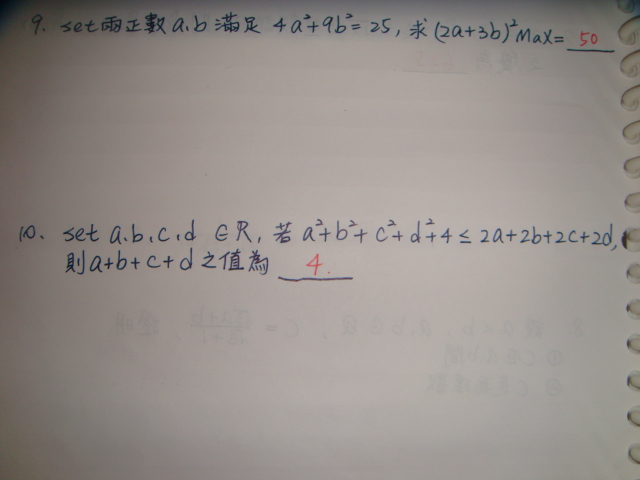 9. set兩正數a、b滿足 4a²+9b²=25, 求(2a+3b)²Max= 50
10. set a、b、c、d ∈R, 若 a²+b²+c²+d²+4≤2a+2b+2c+2d,
則a+b+c+d之值為 4.